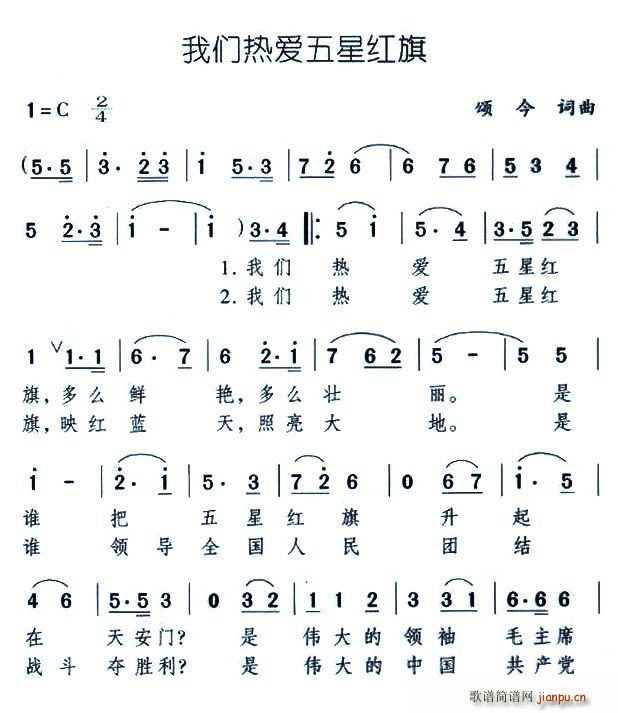 我们热爱五星红旗
1=C 2/4 颂今 词曲
(5·5 | 3· 23 | i 5·3 | 7 2 6 | 6 7 6 | 5 3 4 |
5 2·3 | i - | i ) 3·4 ‖: 5 i | 5· 4 | 3·5 2 3 |
1.我们 热 爱 五星红
2.我们 热 爱 五星红
1 ∨ 1·1 | 6· 7 | 6 2·i | 7 6 2 | 5 - | 5 5 |
旗，多么鲜 艳，多么壮 丽。 是
旗，映红蓝 天，照亮大 地。 是
i - | 2· i | 5· 3 | 7 2 6 | 0 6 7 | i· 5 |
谁 把 五星红 旗 升 起
谁 领导全国人 民 团 结
4 6 | 5·5 3 | 0 3 2 | 1 1 2 | 3 3 2 1 | 6·6 6 |
在 天安门？是 伟大的领袖 毛主席
战斗 夺胜利？是 伟大的中国 共产党
歌谱简谱网 jianpu.cn